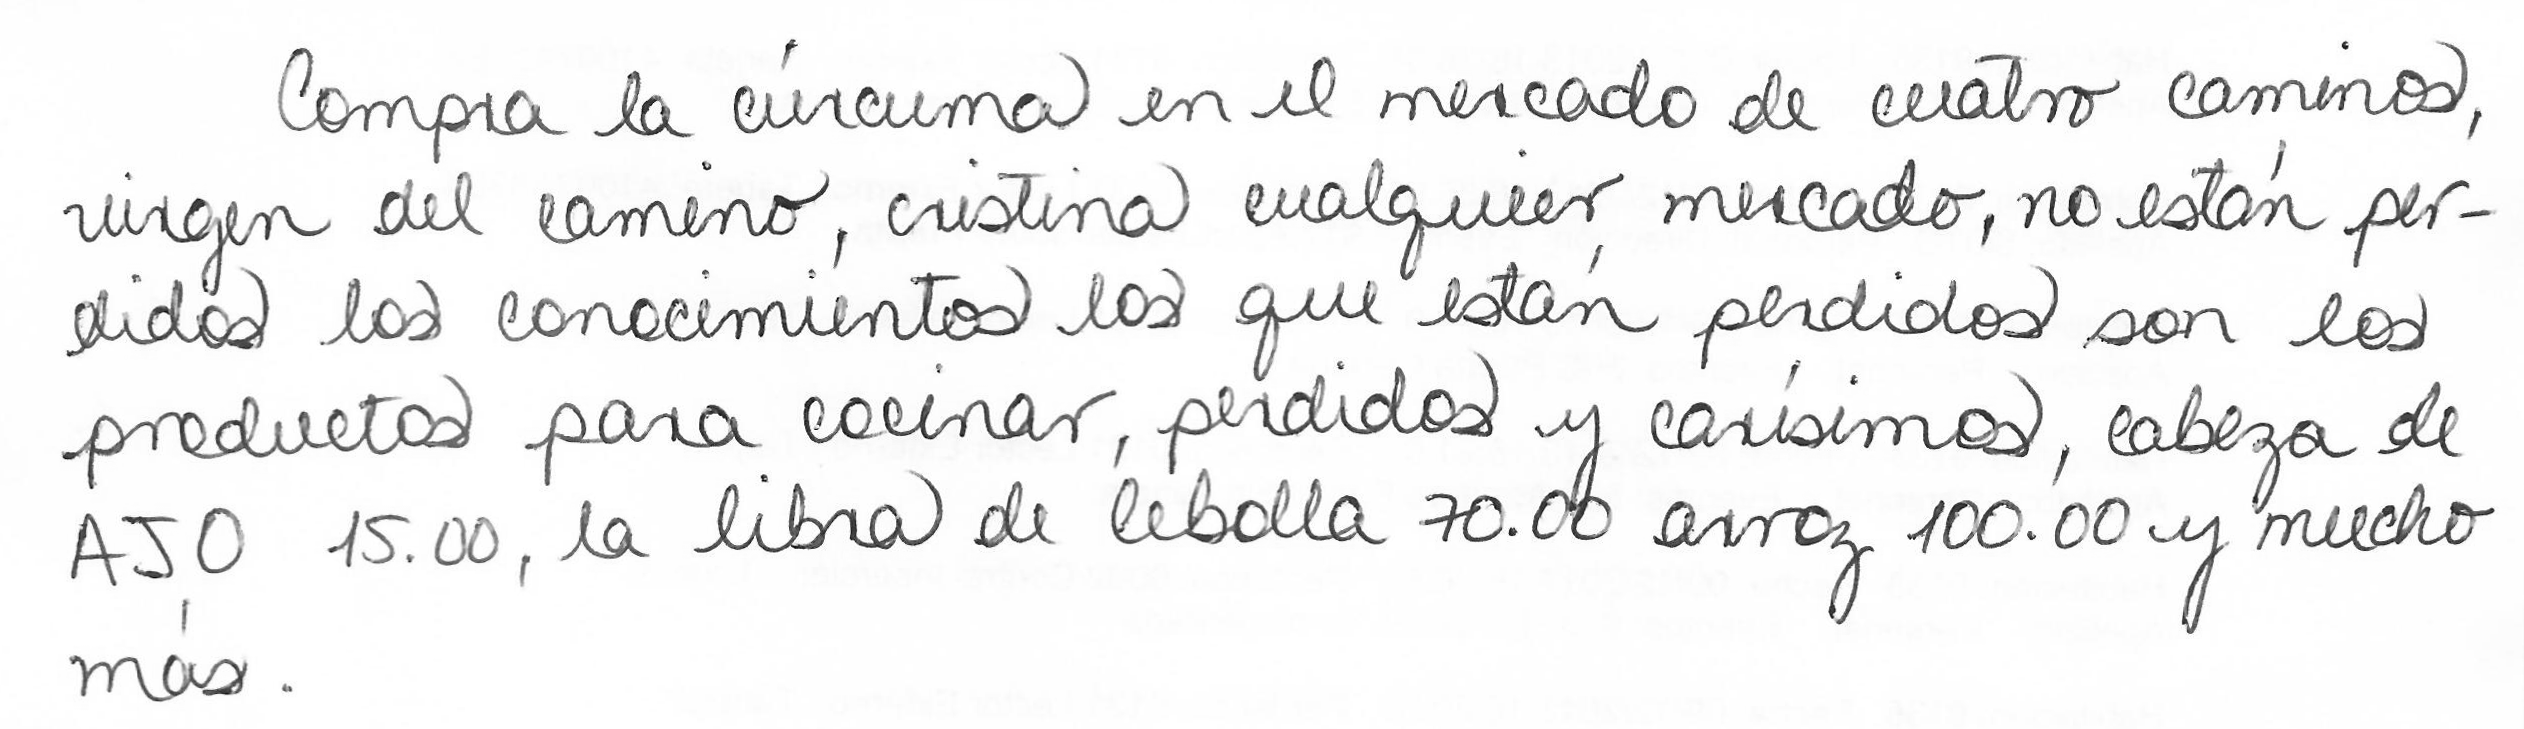 Compra la cúrcuma en el mercado de cuatro caminos,
virgen del camino, cristina cualquier mercado, no están per-
didos los conocimientos los que están perdidos son los
productos para cocinar, perdidos y carísimos, cabeza de
AJO 15.00, la libra de Cebolla 70.00 arroz 100.00 y mucho
más.